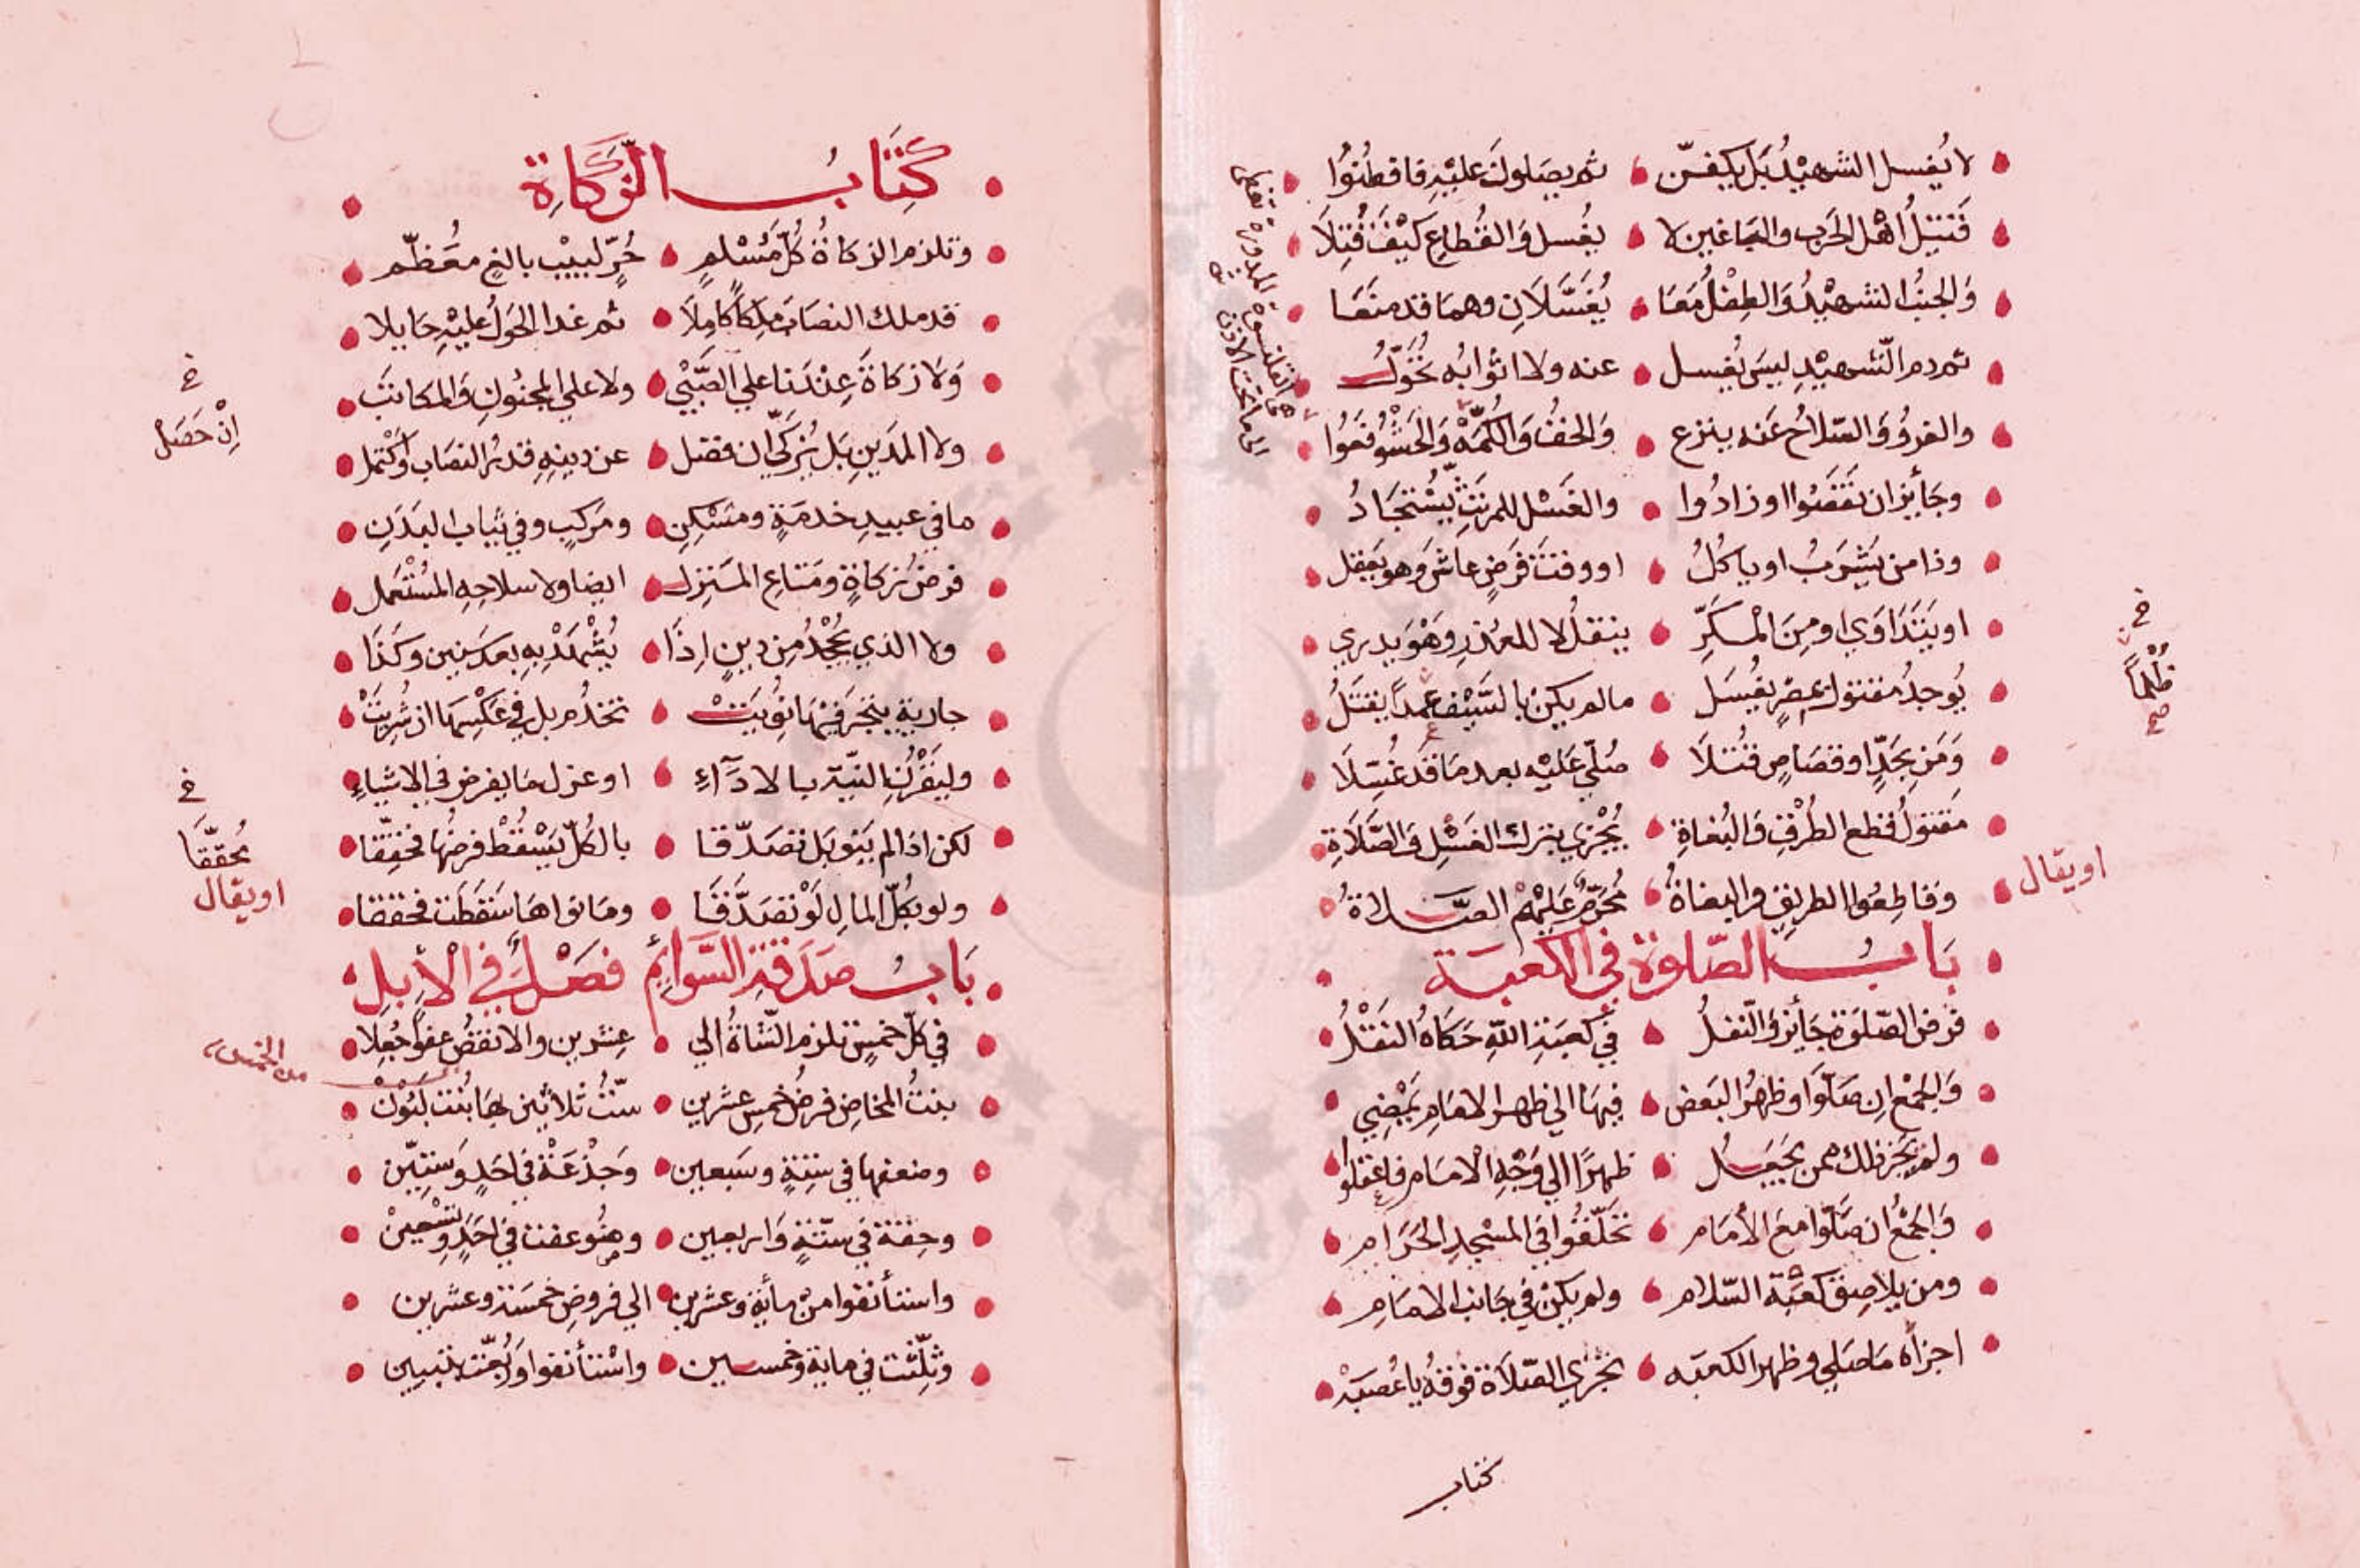 لا يُغسل الشهيْدُ بَل يكفّن ثم يصَلونَ عليْهِ فافطُنُوا
قَتيْلُ أهْل الحَرْب والبَاغين لا يغُسل وَالقُطاعِ كيْفَ قُتِلَا
وَالجنُبُ الشهيْدُ وَالطِفْلُ مَعَا يُغَسَّلَانِ وهما قد منَعَا
ثم دم الشّهيْدِ ليسَ يُغسل عنه ولا اثوابُه تُحَوَّلُ
والفروُ وَالسّلاحُ عَنه ينزع وَالخفُ وَالكُمّهْ وَالحَشْوُ فَعُوا
وجَائِز ان نقَصُوا او زادُوا والغَسْل للمرتَثِّ يُسْتجَادُ
وذا من يَشرَبُ او ياكُلُ او وقتَ فَرَضٍ عاشَ وَهو يَعقل
او يَتَدَاوَي او مِنَ الْمكَرِّ ينقلُ لا للعُذرِ وَهْوَ يدري
يُوجدُ مقتول بمصرٍ يغُسَل ما لم يكن بالسَّيْف عمداً يقتَلُ
وَمَن بِحَدٍّ او قصَاصٍ قُتلَا صُلّي عَليْه بعد مَا قَدْ غُسِلَا
مَقتولُ قطع الطُرْقِ وَالبُغاةِ يُجْزي بترك الغَسْلِ وَالصَّلَاةِ
وَقاطِعُوا الطريقِ والبغاةُ مُحَرَّمٌ عَليْهِمْ الصَّلاةُ
اويقال
بَابُ الصّلوة في الكعبَة
فرض الصّلوَة جَائز وَالنّفلُ في كَعبَةِ اللّهِ حَكَاهُ النقْلُ
وَالجَمْعُ اِن صَلّوَا وظهرُ البَعض فيهَا الي ظهر الامَامِ يَمْضِي
ولم يَجُز ذلك ممن يَجعَلُ ظهرًا الي وَجْهِ الْامَامِ فاعقلوا
وَالجَمْعُ ان صَلّوا معَ الأمَامِ تحَلّقُوا في المسْجدِ الحَرَامِ
ومن يلاصِق كعْبَة السّلام ولم يكنْ في جَانب الامَامِ
اجزأه مَا صَلي وظهر الكعبَه تجزي الصّلَاة فوقهُ يا عُصبَهْ
خ
ظُلْماً
صح
كتاب
كِتَابُ الزّكَاةِ
وتلزم الزكاةُ كُلّ مُسْلمٍ حُرٍّ لبيْب بالغٍ معُظّم
قد ملك النصَابَ مِلكاً كَامِلَا ثم غدا الحَولُ عليْهِ حَايلا
وَلَا زكَاةَ عِنْدَنا علي الصّبْي ولا علي المجنُونِ وَالمكاتبَ
ولا المدَينِ بَل يُزكّي ان فضل عن دينِهِ قدرُ النصَاب وَاكْتمل
ما في عبيدِ خدمَةٍ ومسْكِنِ ومَركبٍ وفي ثياب البدَنِ
فرضُ زكاةٍ ومَتاعِ المنزلِ ايضا ولا سلاحِهِ المُسْتْعَمل
ولا الذي يُجْحدُ مِن دينٍ اِذَا يُشْهَدْ بِهِ بعدَ سَنِين وكَذا
جارية يتجر فيْهَا نُويَتْ تخدُم بل في عَكْسِهَا از شُرِيَتْ
وليَقْرُنِ النيّة بالادَآءِ او عزل مَا يفرض في الاشيَاءِ
لكن اذا لم يَنو بَل تصَدّقا بالكُلّ يَسْقُطْ فرضُها مُحَقِّقا
ولو بكُلّ المالِ لَوْ تصَدَّقَا وما نواهَا سَقطَت فحققا
خ
اِنْ حَصَلْ
خ
مُحَقّقَا
اويقال
بَابُ صَدَقَة السَّوائِم فصْلٌ في الْأِبلِ
في كلّ خمسٍ تلزم الشّاةُ الي عِشرين والانقصُ عفوًا جُعِلا
من الخمس
بنتُ المخاضِ فرضُ خمسِ عشرين ستُّ ثلاثين بهَا بنْت لَبُوْنْ
وضعفها في ستةٍ وسَبعين وَجذْعَةْ في احَدٍ وَستِيّن
وحِقة في ستّةٍ وَاربعين وضُوعفت في احَدٍ وتسْعِينْ
واستأنفوا منْ مأيَة وعشرين الي فروض خمسَة وعشرين
وثلِّثت في ماية وخمسين واسْتأنفوا وَرُبّعَت